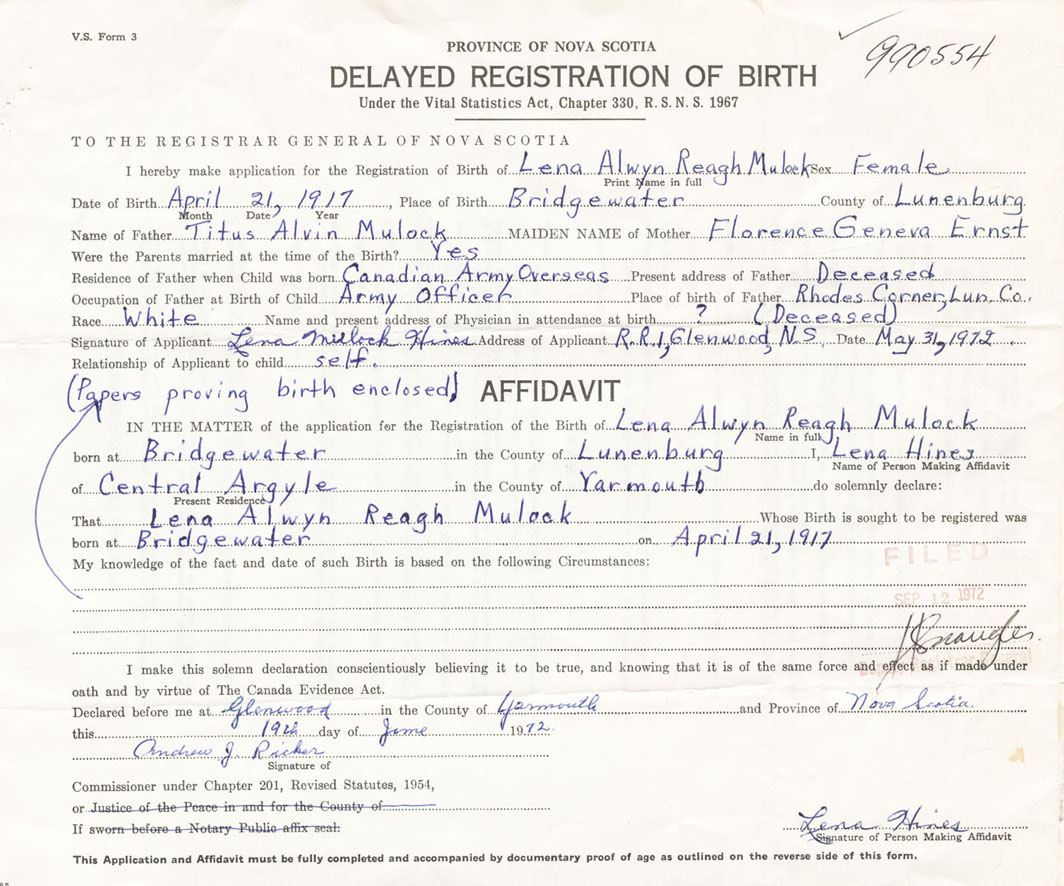 V.S. Form 3
990554
PROVINCE OF NOVA SCOTIA
DELAYED REGISTRATION OF BIRTH
Under the Vital Statistics Act, Chapter 330, R.S.N.S. 1967
TO THE REGISTRAR GENERAL OF NOVA SCOTIA
I hereby make application for the Registration of Birth of Lena Alwyn Reagh Mulock Sex Female
Print Name in full
Date of Birth April 21, 1917, Place of Birth Bridgewater County of Lunenburg
Month Date, Year
Name of Father Titus Alvin Mulock MAIDEN NAME of Mother Florence Geneva Ernst
Were the Parents married at the time of the Birth? Yes
Residence of Father when Child was born Canadian Army Overseas Present address of Father Deceased
Occupation of Father at Birth of Child Army Officer Place of birth of Father Rhodes Corner, Lun. Co.,
Race White Name and present address of Physician in attendance at birth ? (Deceased)
Signature of Applicant Lena Mulock Hines Address of Applicant R.R.1, Glenwood, N.S., Date May 31, 1972
Relationship of Applicant to child self.
(Papers proving birth enclosed) AFFIDAVIT
IN THE MATTER of the application for the Registration of the Birth of Lena Alwyn Reagh Mulock
Name in full
born at Bridgewater in the County of Lunenburg I, Lena Hines
Name of Person Making Affidavit
of Central Argyle in the County of Yarmouth do solemnly declare:
Present Residence
That Lena Alwyn Reagh Mulock Whose Birth is sought to be registered was
born at Bridgewater on April 21, 1917
My knowledge of the fact and date of such Birth is based on the following Circumstances:
FILED
SEP 12 1972
I make this solemn declaration conscientiously believing it to be true, and knowing that it is of the same force and effect as if made under
oath and by virtue of The Canada Evidence Act.
Declared before me at Glenwood in the County of Yarmouth and Province of Nova Scotia.
this 19th day of June 1972.
Andrew J. Ricker
Signature of
Commissioner under Chapter 201, Revised Statutes, 1954,
or Justice of the Peace in and for the County of
If sworn before a Notary Public affix seal.
Lena Hines
Signature of Person Making Affidavit
This Application and Affidavit must be fully completed and accompanied by documentary proof of age as outlined on the reverse side of this form.